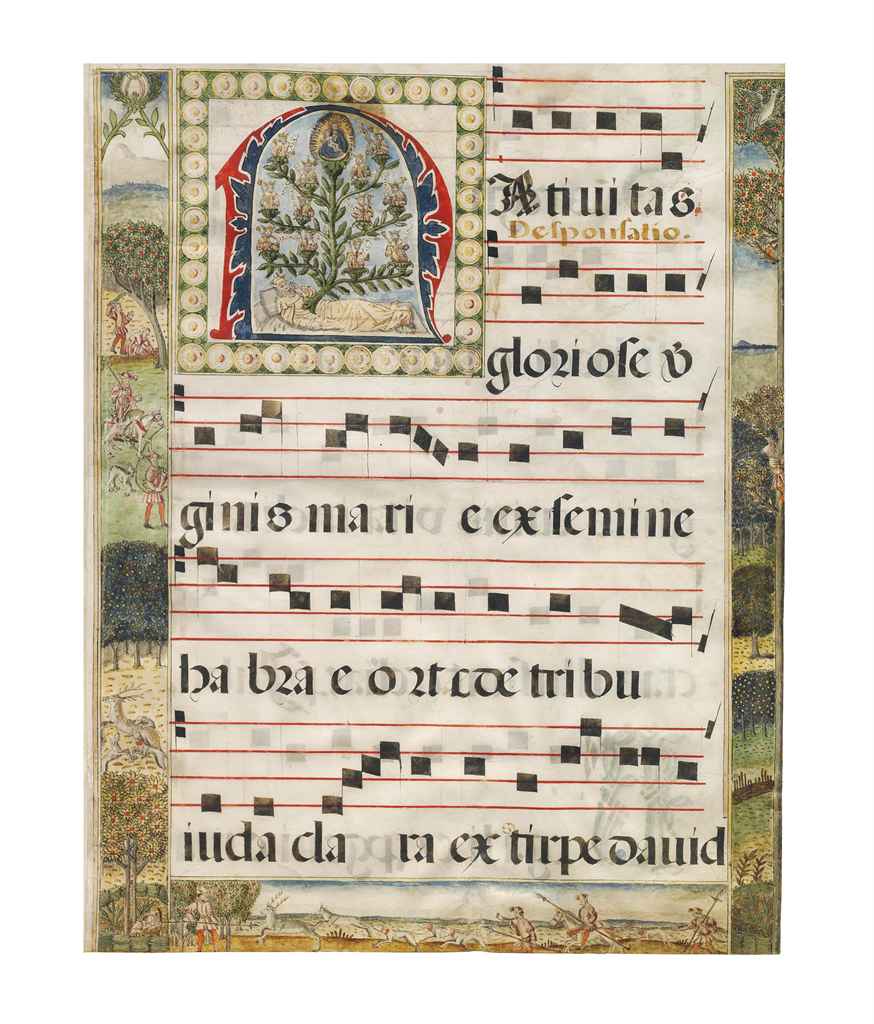 NAtiuitas.
Desponsatio.
glorioſe v
ginis marie ex ſemine
habrae orta de tribu
iuda clara ex ſtirpe dauid